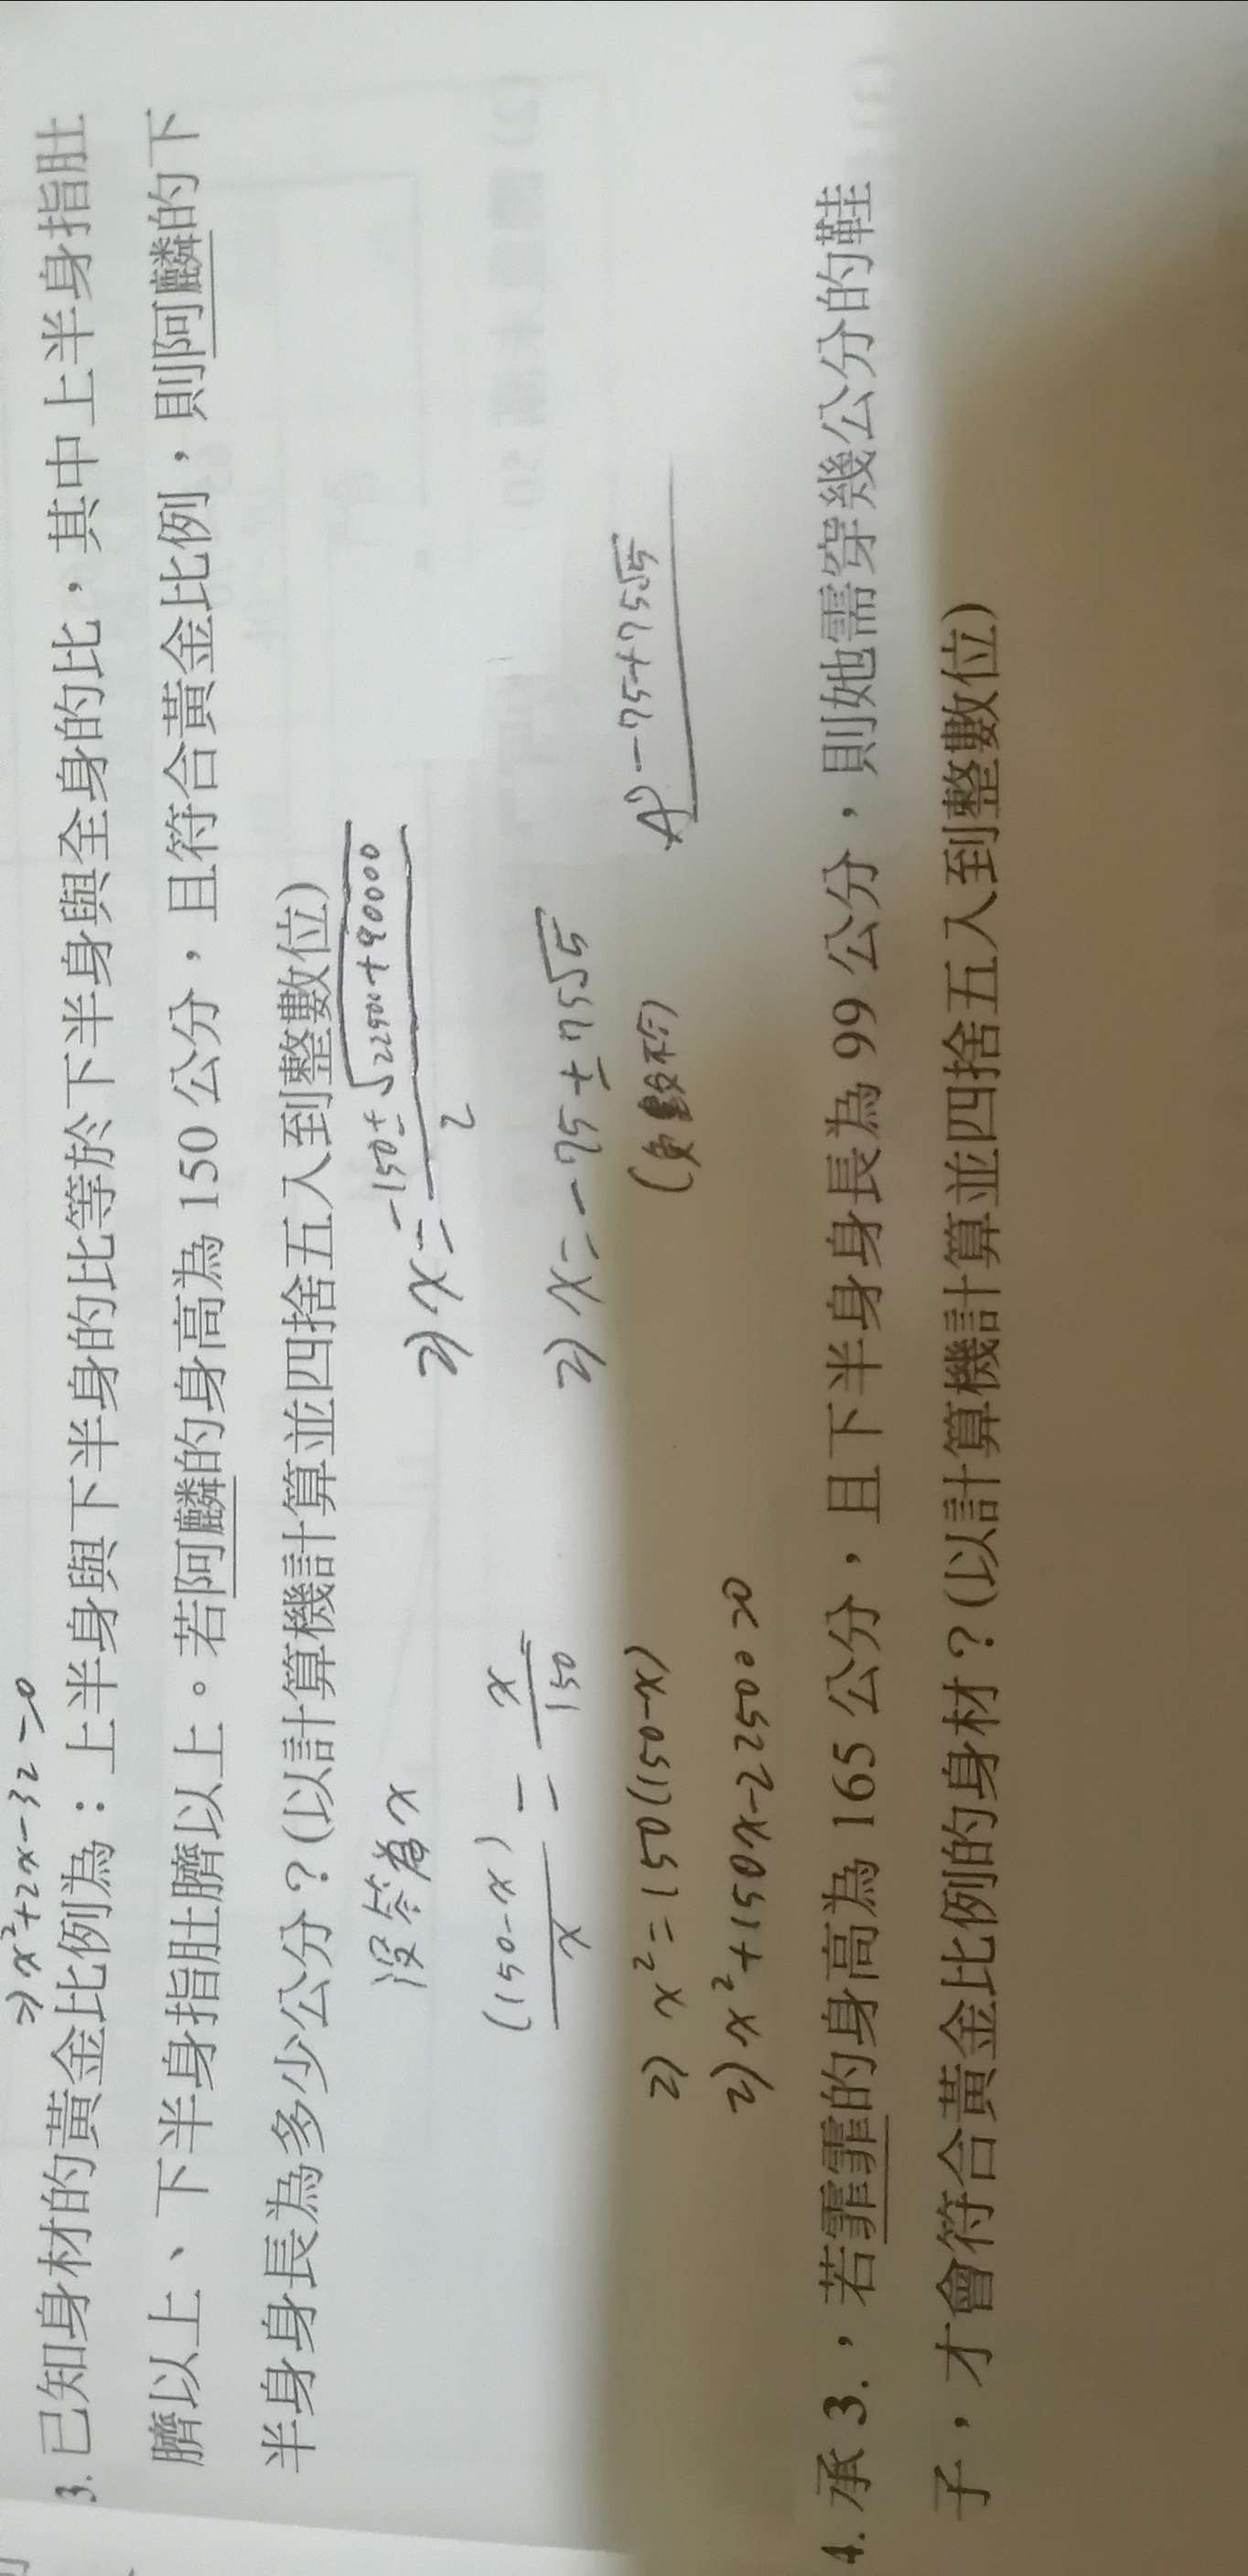 ⇒x²+2x-32=0
3. 已知身材的黃金比例為：上半身與下半身的比等於下半身與全身的比，其中上半身指肚
臍以上、下半身指肚臍以上。若阿麟的身高為 150 公分，且符合黃金比例，則阿麟的下
半身身長為多少公分？(以計算機計算並四捨五入到整數位)
設答為x
(150-x)/x = x/150
⇒ x²=150(150-x)
⇒ x²+150x-22500=0
⇒ x= -150±√22500+90000 / 2
⇒ x=-75±75√5
(負數不合)
A) -75+75√5
4. 承 3.，若霏霏的身高為 165 公分，且下半身身長為 99 公分，則她需穿幾公分的鞋
子，才會符合黃金比例的身材？(以計算機計算並四捨五入到整數位)